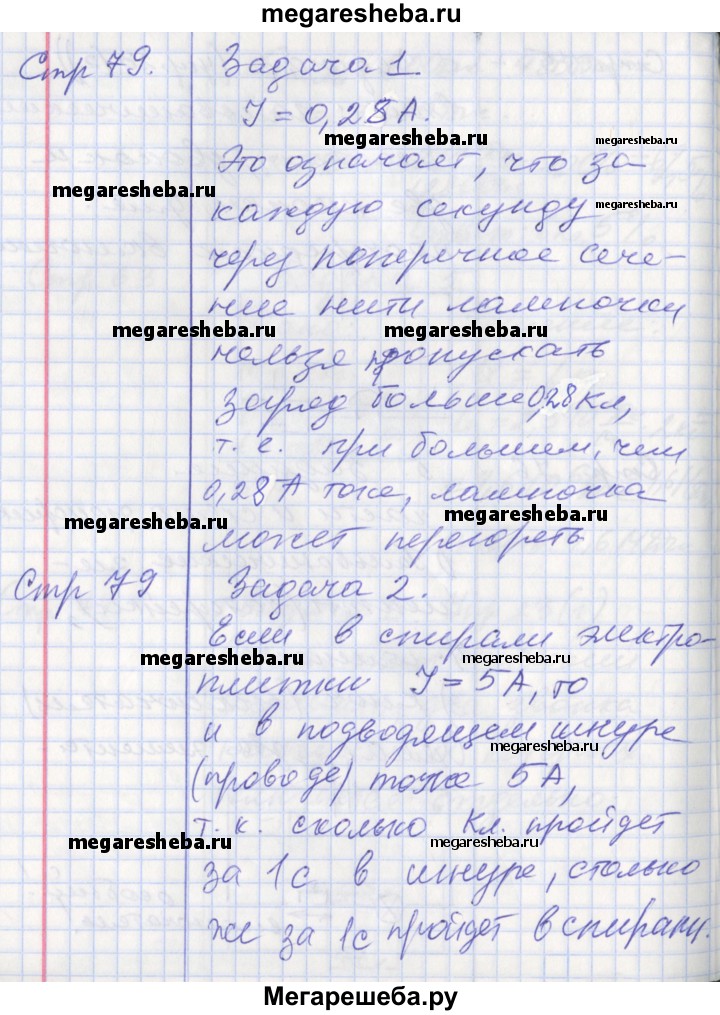 megaresheba.ru
Стр 79. Задача 1.
I = 0,28 А.
megaresheba.ru megaresheba.ru
Это означает, что за
megaresheba.ru
каждую секунду megaresheba.ru
через поперечное сече-
ние нити лампочки
megaresheba.ru megaresheba.ru
нельзя допускать
заряд больше 0,28 Кл,
т. е. при большем, чем
0,28 А токе, лампочка
megaresheba.ru megaresheba.ru
может перегореть
Стр 79 Задача 2.
Если в спирали электро-
megaresheba.ru megaresheba.ru
плитки I = 5 А, то
и в подводящем шнуре
megaresheba.ru
(проводе) тоже 5 А,
т. к. сколько Кл. пройдет
megaresheba.ru megaresheba.ru
за 1 с в шнуре, столько
же за 1с пройдет в спирали.
Мегарешеба.ру